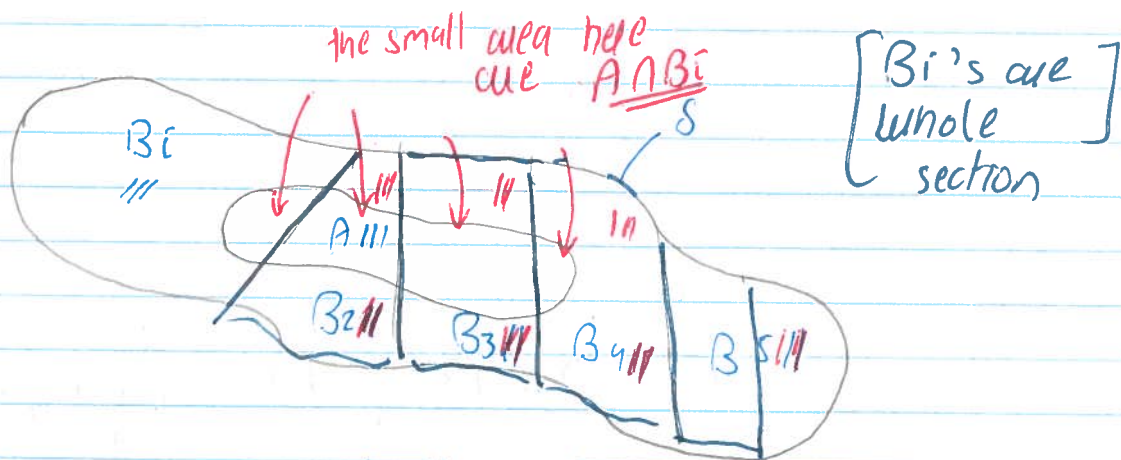 the small area here
are A∩Bi
[Bi's are
whole
section]
S
Bi
A
B2
B3
B4
B5